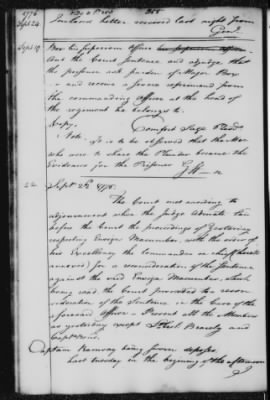 1776
Sept 24
Inclosed letter received last night from
Genl
Sept 19
Box his superior officer
And the Court Sentence and adjudge that
the prisoner ask pardon of Major Box
and receive a severe reprimand from
the commanding officer at the head of
the regiment he belongs to.
Copy.
Comfort Sage Presdt
Note. It is to be observed that the Men
who were to share the Plunder became the
Evidence for the Prisoner G W n
22
Sept 22d 1776.
The Court met according to
adjournment when the Judge Advocate laid
before the Court the proceedings of Yesterday
respecting Ensign Macumber, with the desire of
his Excellency the Commander in chief
annexed) for a reconsideration of the Sentence
against the said Ensign Macumber, which
being read the Court proceeded to recon
sideration of the Sentence in the Case of the
aforesaid officer Present all the Members
as yesterday except
Captain Ramsay being sworn deposes
last tuesday in the beginning of the afternoon